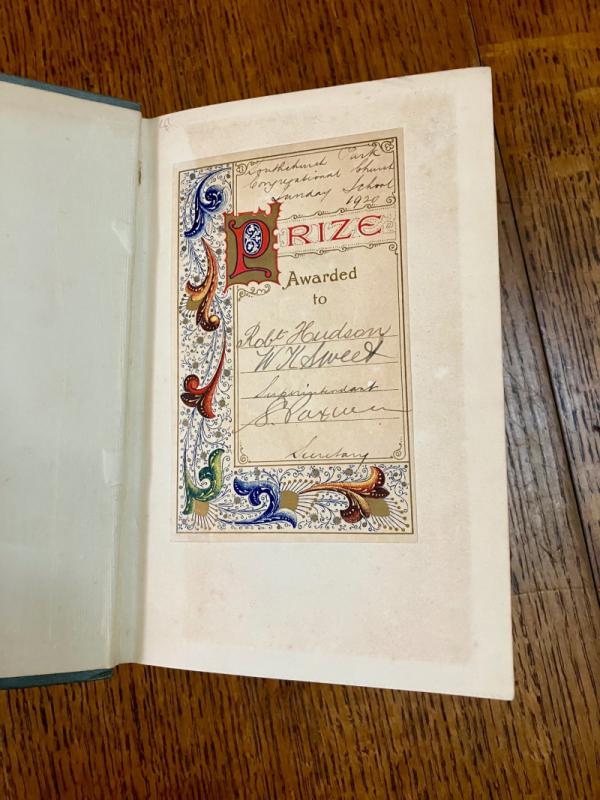 Southchurch Park
Congregational Church
Sunday School
1920
PRIZE
Awarded
to
Robt Hudson
W H Sweet
Superintendent
S.
Secretary